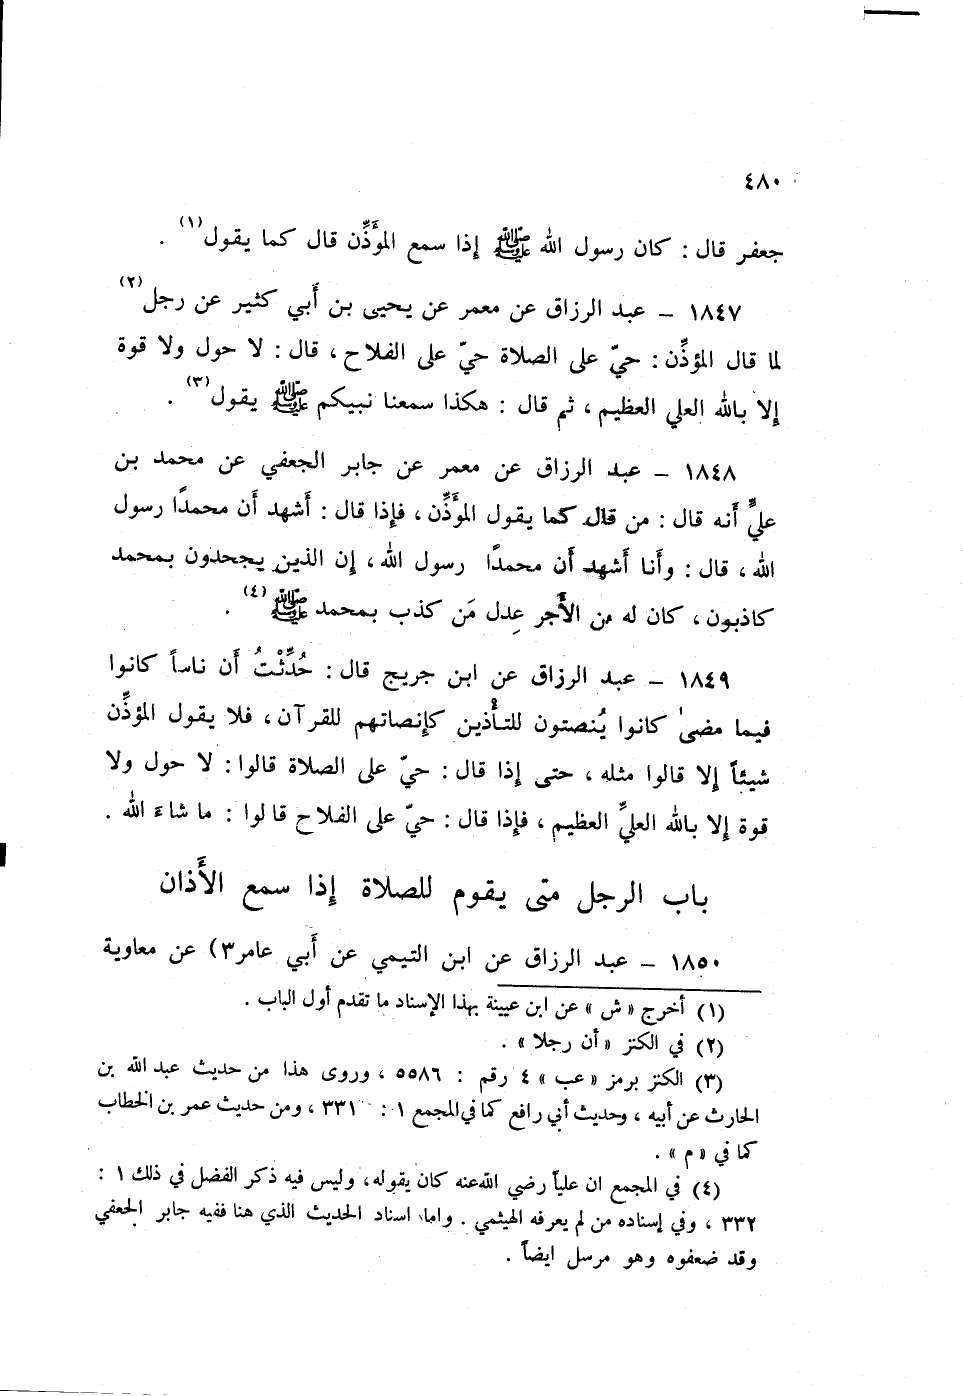 ٤٨٠
جعفر قال : كان رسول الله ﷺ إذا سمع المؤَذِّن قال كما يقول(١) .
١٨٤٧ – عبد الرزاق عن معمر عن يحيى بن أَبي كثير عن رجل(٢)
لما قال المؤذِّن : حيّ على الصلاة حيّ على الفلاح ، قال : لا حول ولا قوة
إلا بالله العلي العظيم ، ثم قال : هكذا سمعنا نبيكم ﷺ يقول(٣) .
١٨٤٨ – عبد الرزاق عن معمر عن جابر الجعفي عن محمد بن
عليٍّ أَنه قال : من قال كما يقول المؤَذِّن ، فإذا قال : أَشهد أَن محمدًا رسول
الله ، قال : وأَنا أَشهد أَن محمدًا رسول الله ، إن الذين يجحدون بمحمد
كاذبون ، كان له من الأَجر عِدل مَن كذب بمحمد ﷺ(٤) .
١٨٤٩ – عبد الرزاق عن ابن جريج قال : حُدِّثْتُ أَن ناساً كانوا
فيما مضىٰ كانوا يُنصتون للتأْذين كإنصاتهم للقرآن ، فلا يقول المؤذِّن
شيئاً إلا قالوا مثله ، حتى إذا قال : حيّ على الصلاة قالوا : لا حول ولا
قوة إلا بالله العليِّ العظيم ، فإذا قال : حيّ على الفلاح قالوا : ما شاءَ الله .
باب الرجل متى يقوم للصلاة إذا سمع الأَذان
١٨٥٠ – عبد الرزاق عن ابن التيمي عن أَبي عامر٣) عن معاوية
(١) أخرج « ش » عن ابن عيينة بهذا الإسناد ما تقدم أول الباب .
(٢) في الكنز « أن رجلا » .
(٣) الكنز برمز « عب » ٤ رقم : ٥٥٨٦ ، وروى هذا من حديث عبد الله بن
الحارث عن أبيه ، وحديث أبي رافع كما في المجمع ١ : ٣٣١ ، ومن حديث عمر بن الخطاب
كما في « م » .
(٤) في المجمع ان علياً رضي الله عنه كان يقوله ، وليس فيه ذكر الفضل في ذلك ١ :
٣٣٢ ، وفي إسناده من لم يعرفه الهيثمي . واما اسناد الحديث الذي هنا ففيه جابر الجعفي
وقد ضعفوه وهو مرسل ايضاً .